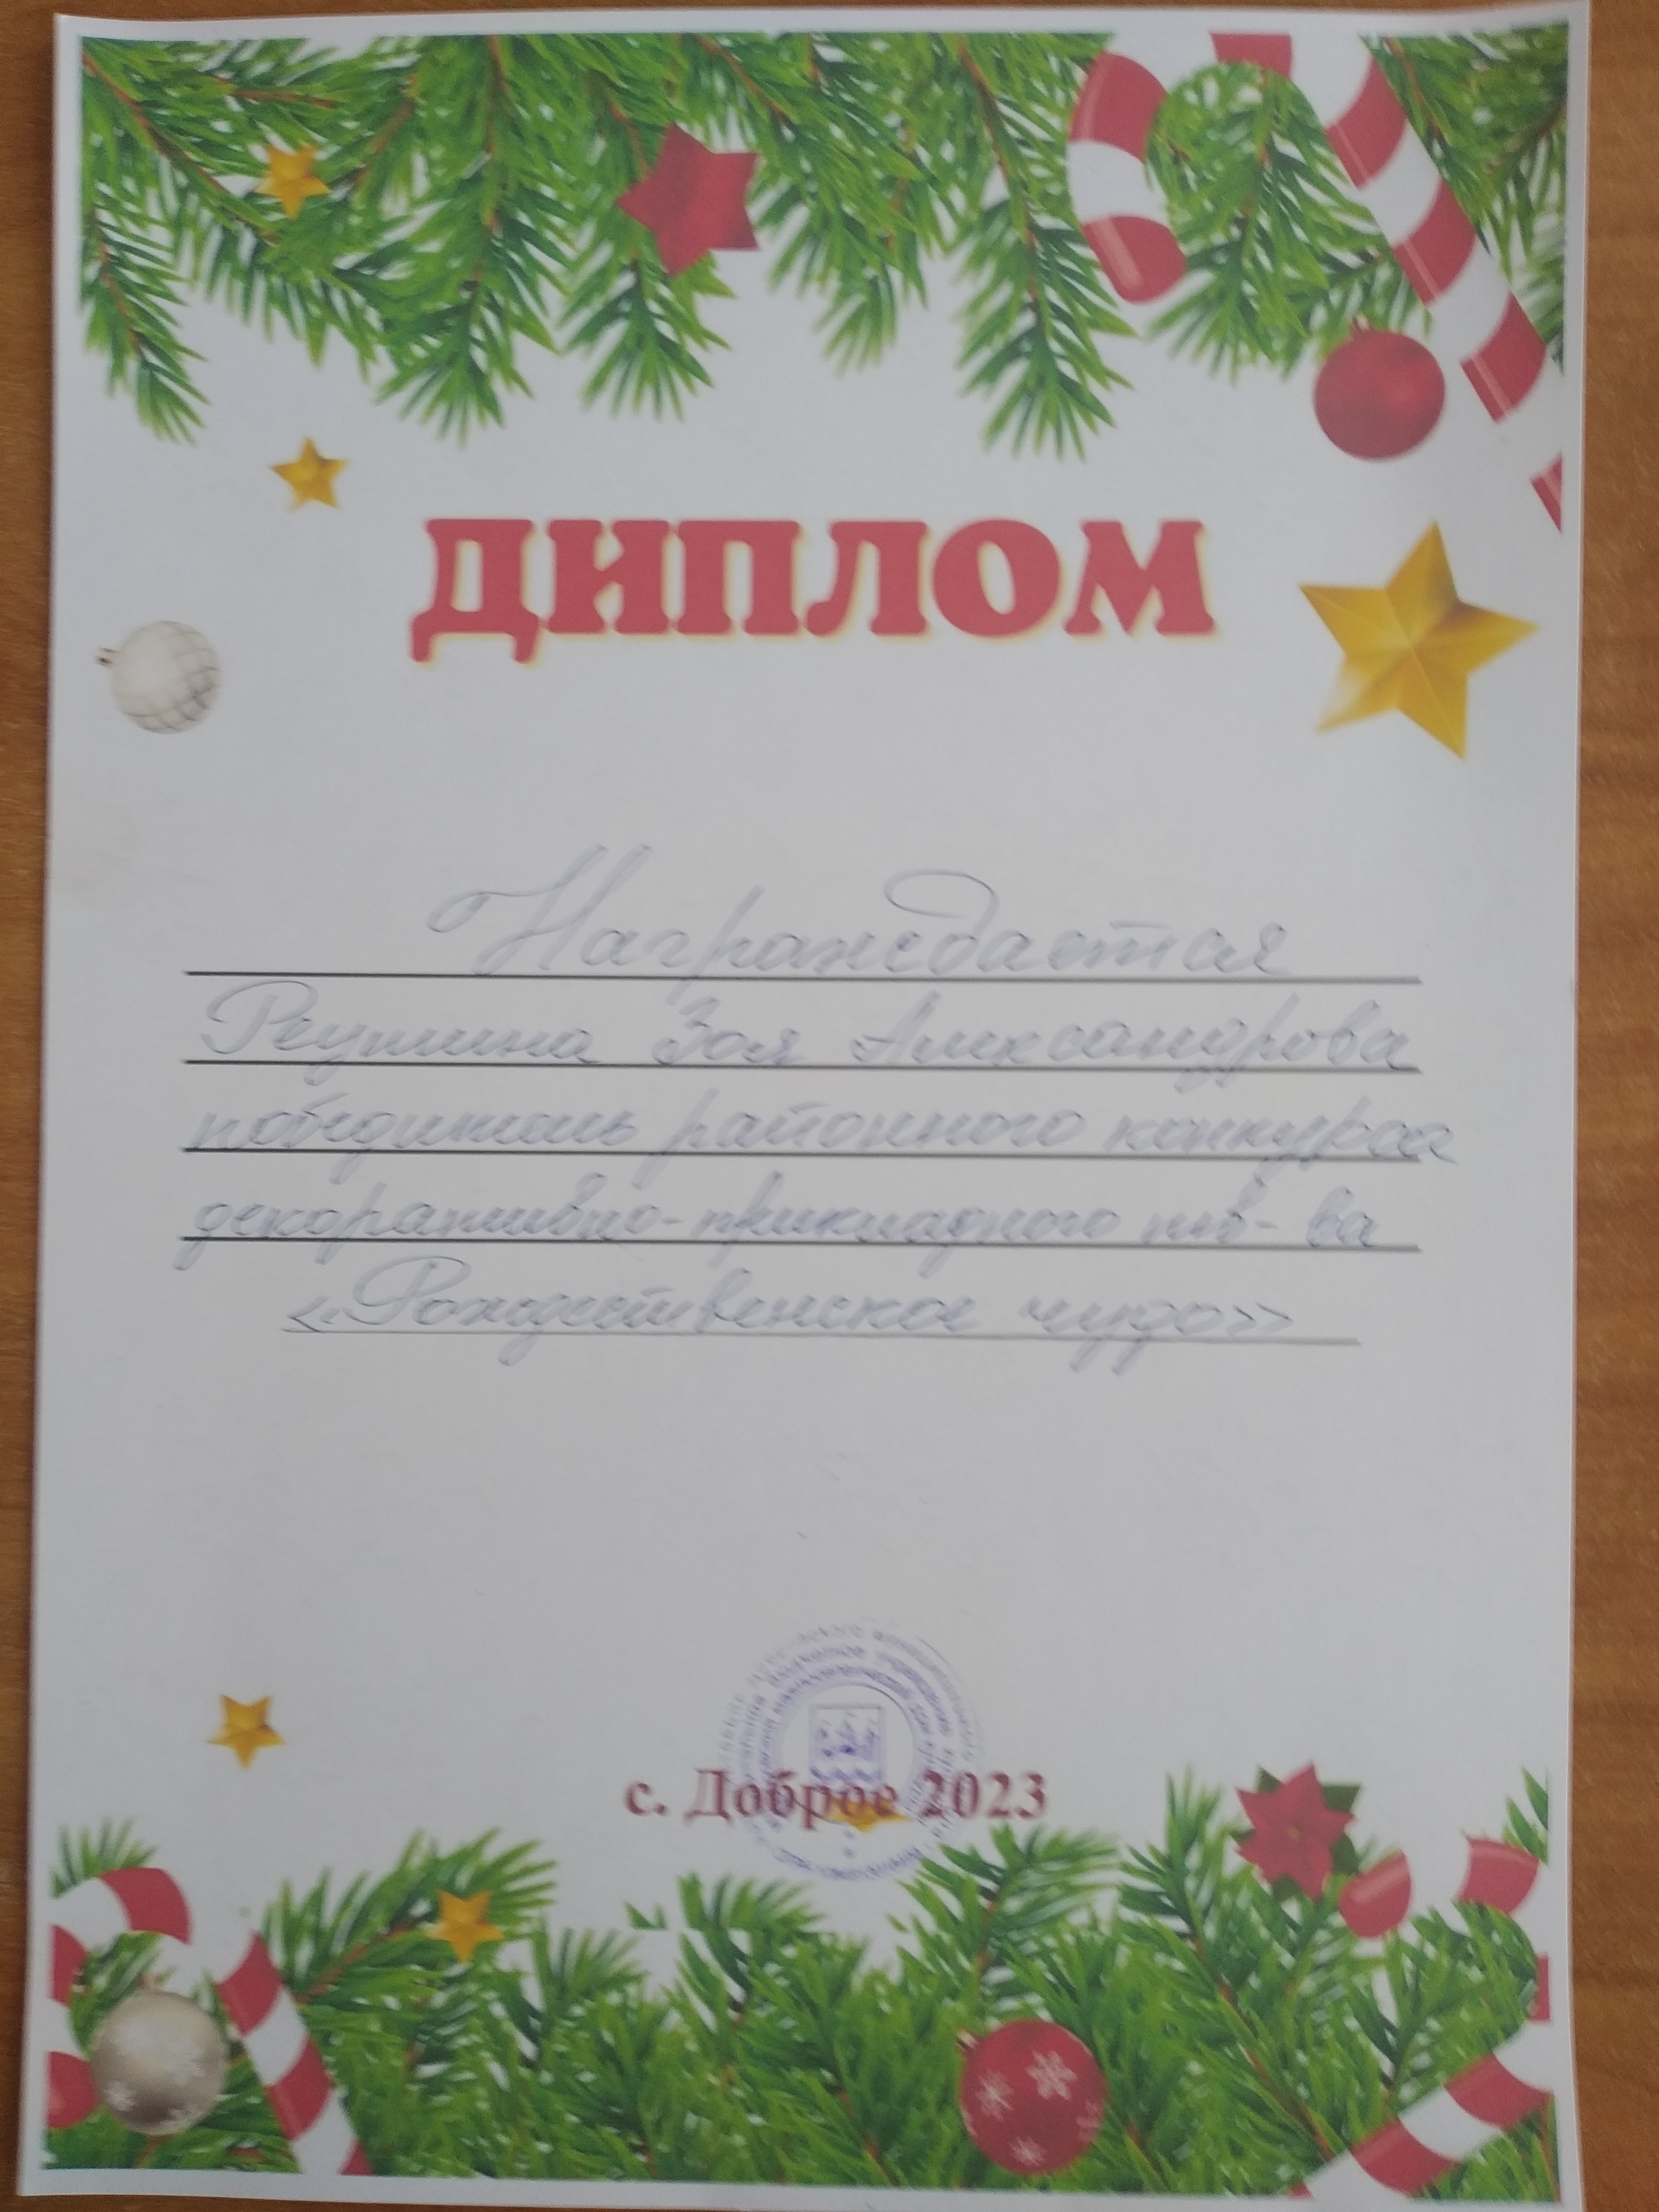 ДИПЛОМ
Награждается
Реушина Зоя Александрова
победитель районного конкурса
декоративно-прикладного тв-ва
«Рождественское чудо»
с. Доброе 2023